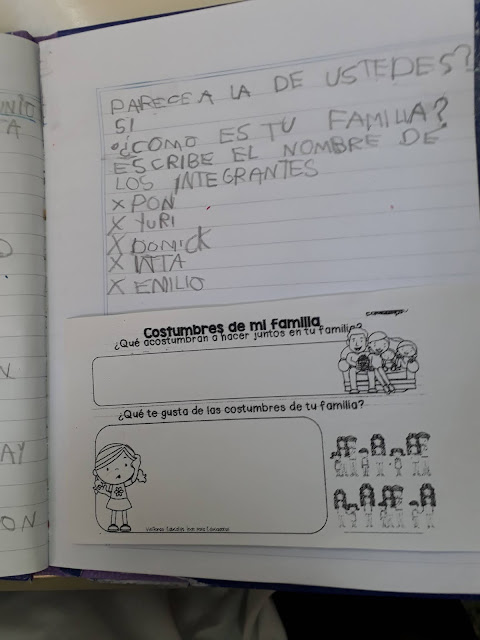 PARECE A LA DE USTEDES?
SI
¿COMO ES TU FAMILIA?
ESCRIBE EL NOMBRE DE
LOS INTEGRANTES
X PON
X YURI
X DONICK
X
X EMILIO
Costumbres de mi familia
¿Qué acostumbran a hacer juntos en tu familia?
¿Qué te gusta de las costumbres de tu familia?
A
AY
ON